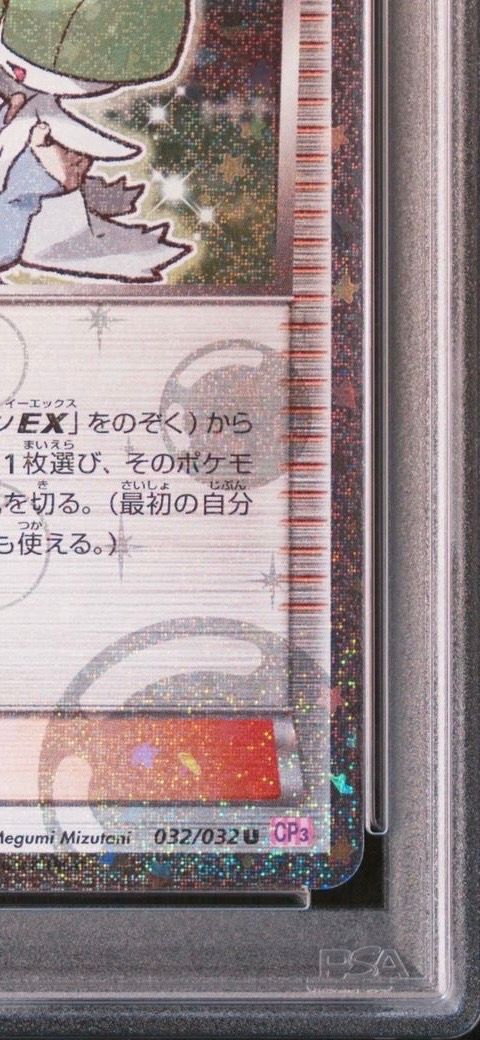 イーエックス
ンEX」をのぞく)から
まいえら
1枚選び、そのポケモ
き さいしょ じぶん
を切る。(最初の自分
つか
も使える。)
Megumi Mizutani 032/032 U CP3
PSA